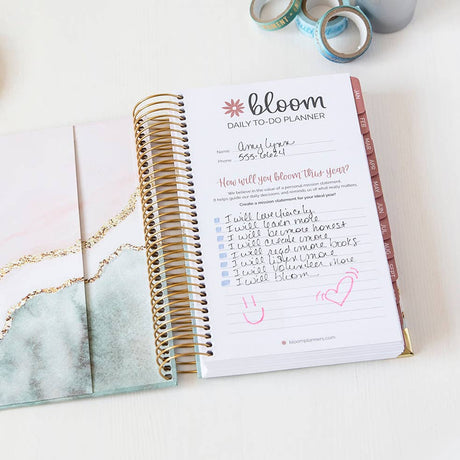 bloom
DAILY TO-DO PLANNER
Name: Amy Lynn
Phone:
How will you bloom this year?
We believe in the value of a personal mission statement.
It helps guide our daily decisions, and reminds us of what really matters.
Create a mission statement for your ideal year!
I will love fiercely
I will learn more
I will be more honest
I will create more
I will read more books
I will listen more
I will volunteer more
I will bloom
bloomplanners.com
JAN
FEB
MAR
APR
MAY
JUN
JUL
AUG
SEPT